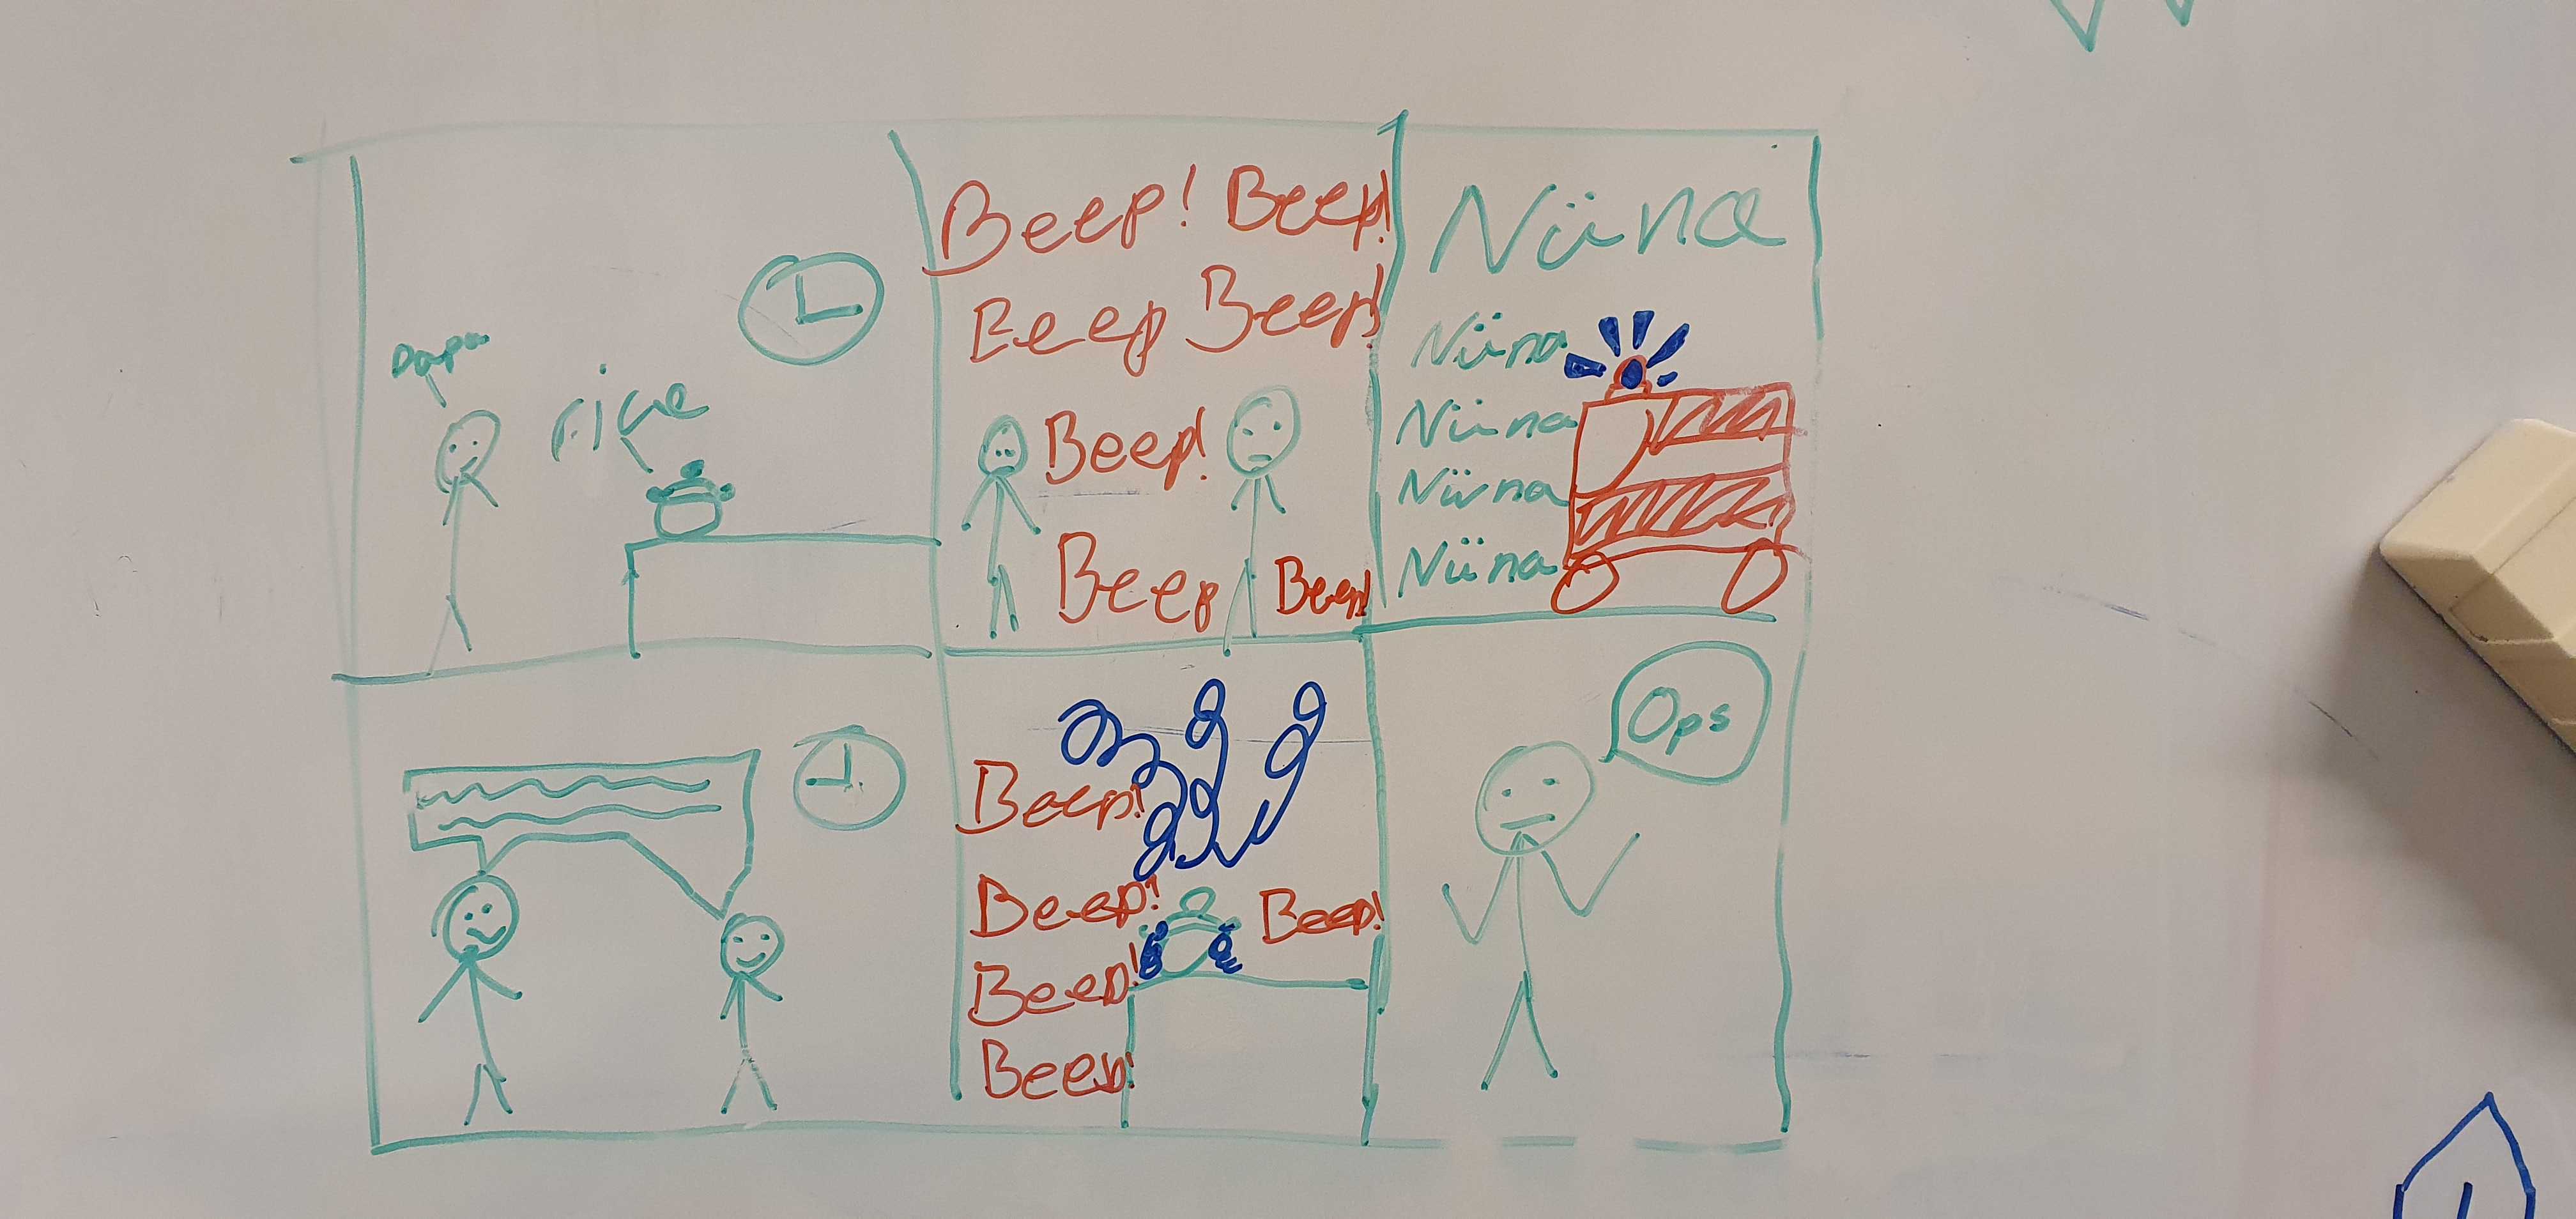 Papa
rice
Beep! Beep!
Beep Beep!
Beep!
Beep Beep!
Niina
Niina
Niina
Niina
Niina
Beep!
Beep! Beep!
Beep!
Beep!
Ops